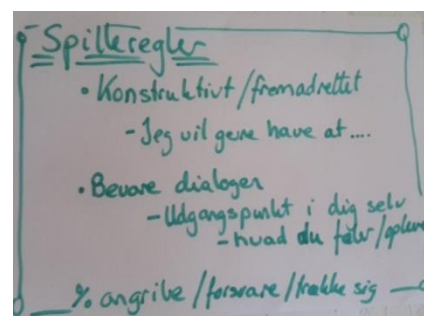 Spilleregler
• Konstruktivt/fremadrettet
- Jeg vil gerne have at ....
• Bevare dialogen
- Udgangspunkt i dig selv
- hvad du føler/opleve
% angribe/forsvare/trække sig